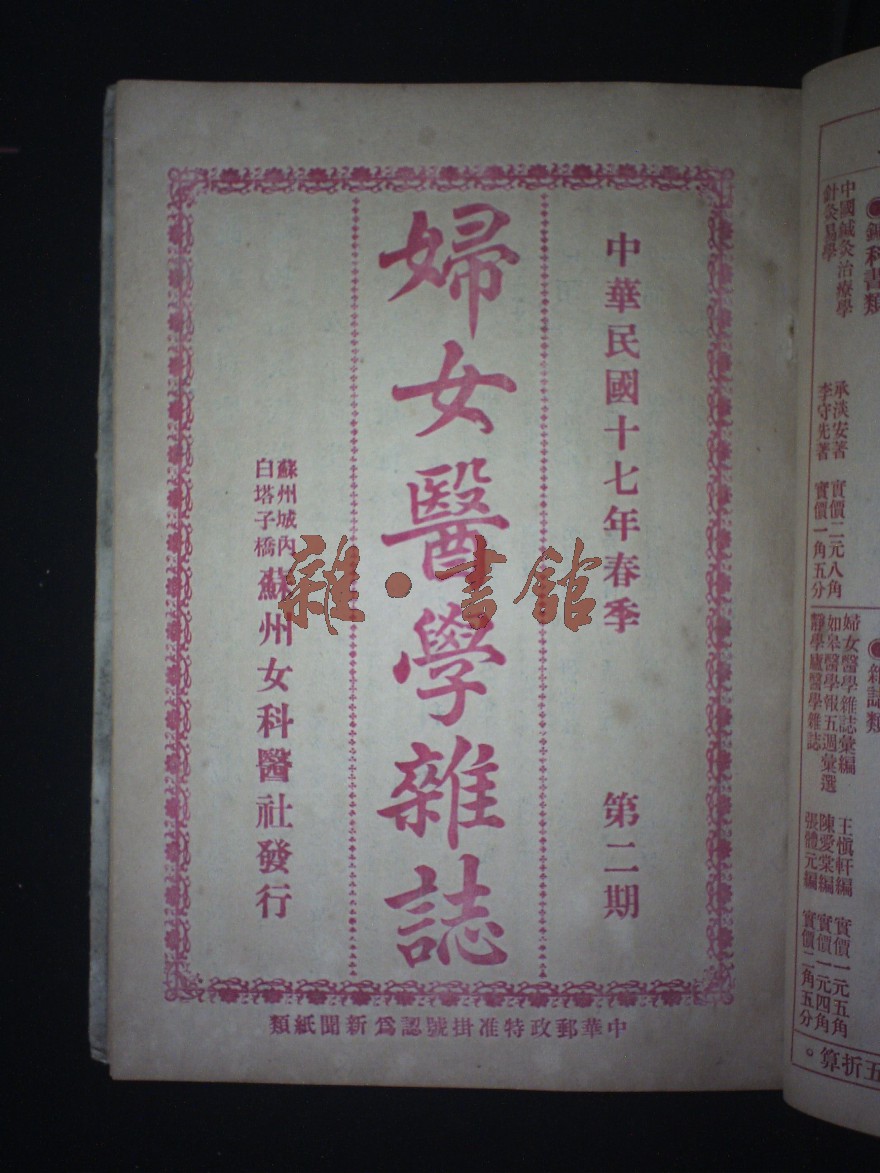 中華民國十七年春季　第二期
婦女醫學雜誌
蘇州城內
白塔子橋
蘇州女科醫社發行
中華郵政特准掛號認爲新聞紙類
雜·書館
中國鍼灸治療學　承淡安著　實價二元八角
針灸易學　李守先著　實價一角五分
婦女醫學雜誌彙編　王愼軒編　實價一元五角
如皋醫學報五週彙選　陳愛棠編　實價一元四角
靜學廬醫學雜誌　張體元編　實價二角五分
五折算。